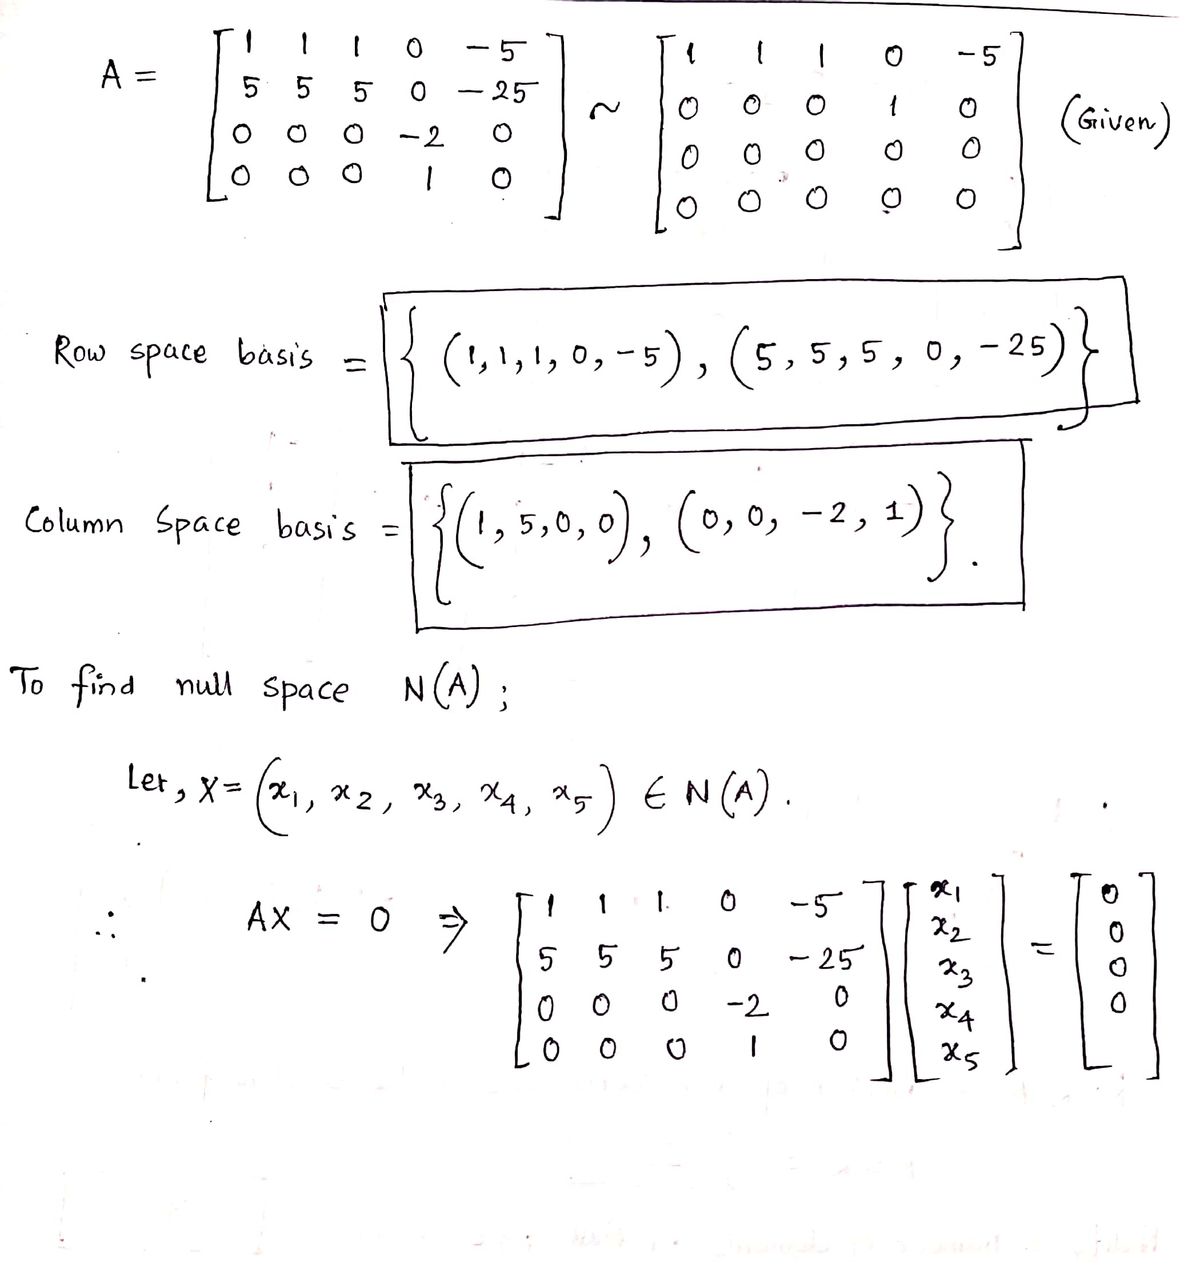 A = [ 1 1 1 0 -5 ; 5 5 5 0 -25 ; 0 0 0 -2 0 ; 0 0 0 1 0 ] ~ [ 1 1 1 0 -5 ; 0 0 0 1 0 ; 0 0 0 0 0 ; 0 0 0 0 0 ] (Given)
Row space basis = { (1,1,1,0,-5), (5,5,5,0,-25) }
Column Space basis = { (1,5,0,0), (0,0,-2,1) }.
To find null space N(A);
Let, X = (x₁, x₂, x₃, x₄, x₅) ∈ N(A).
∴ AX = 0 ⇒ [ 1 1 1 0 -5 ; 5 5 5 0 -25 ; 0 0 0 -2 0 ; 0 0 0 1 0 ] [ x₁ ; x₂ ; x₃ ; x₄ ; x₅ ] = [ 0 ; 0 ; 0 ; 0 ]